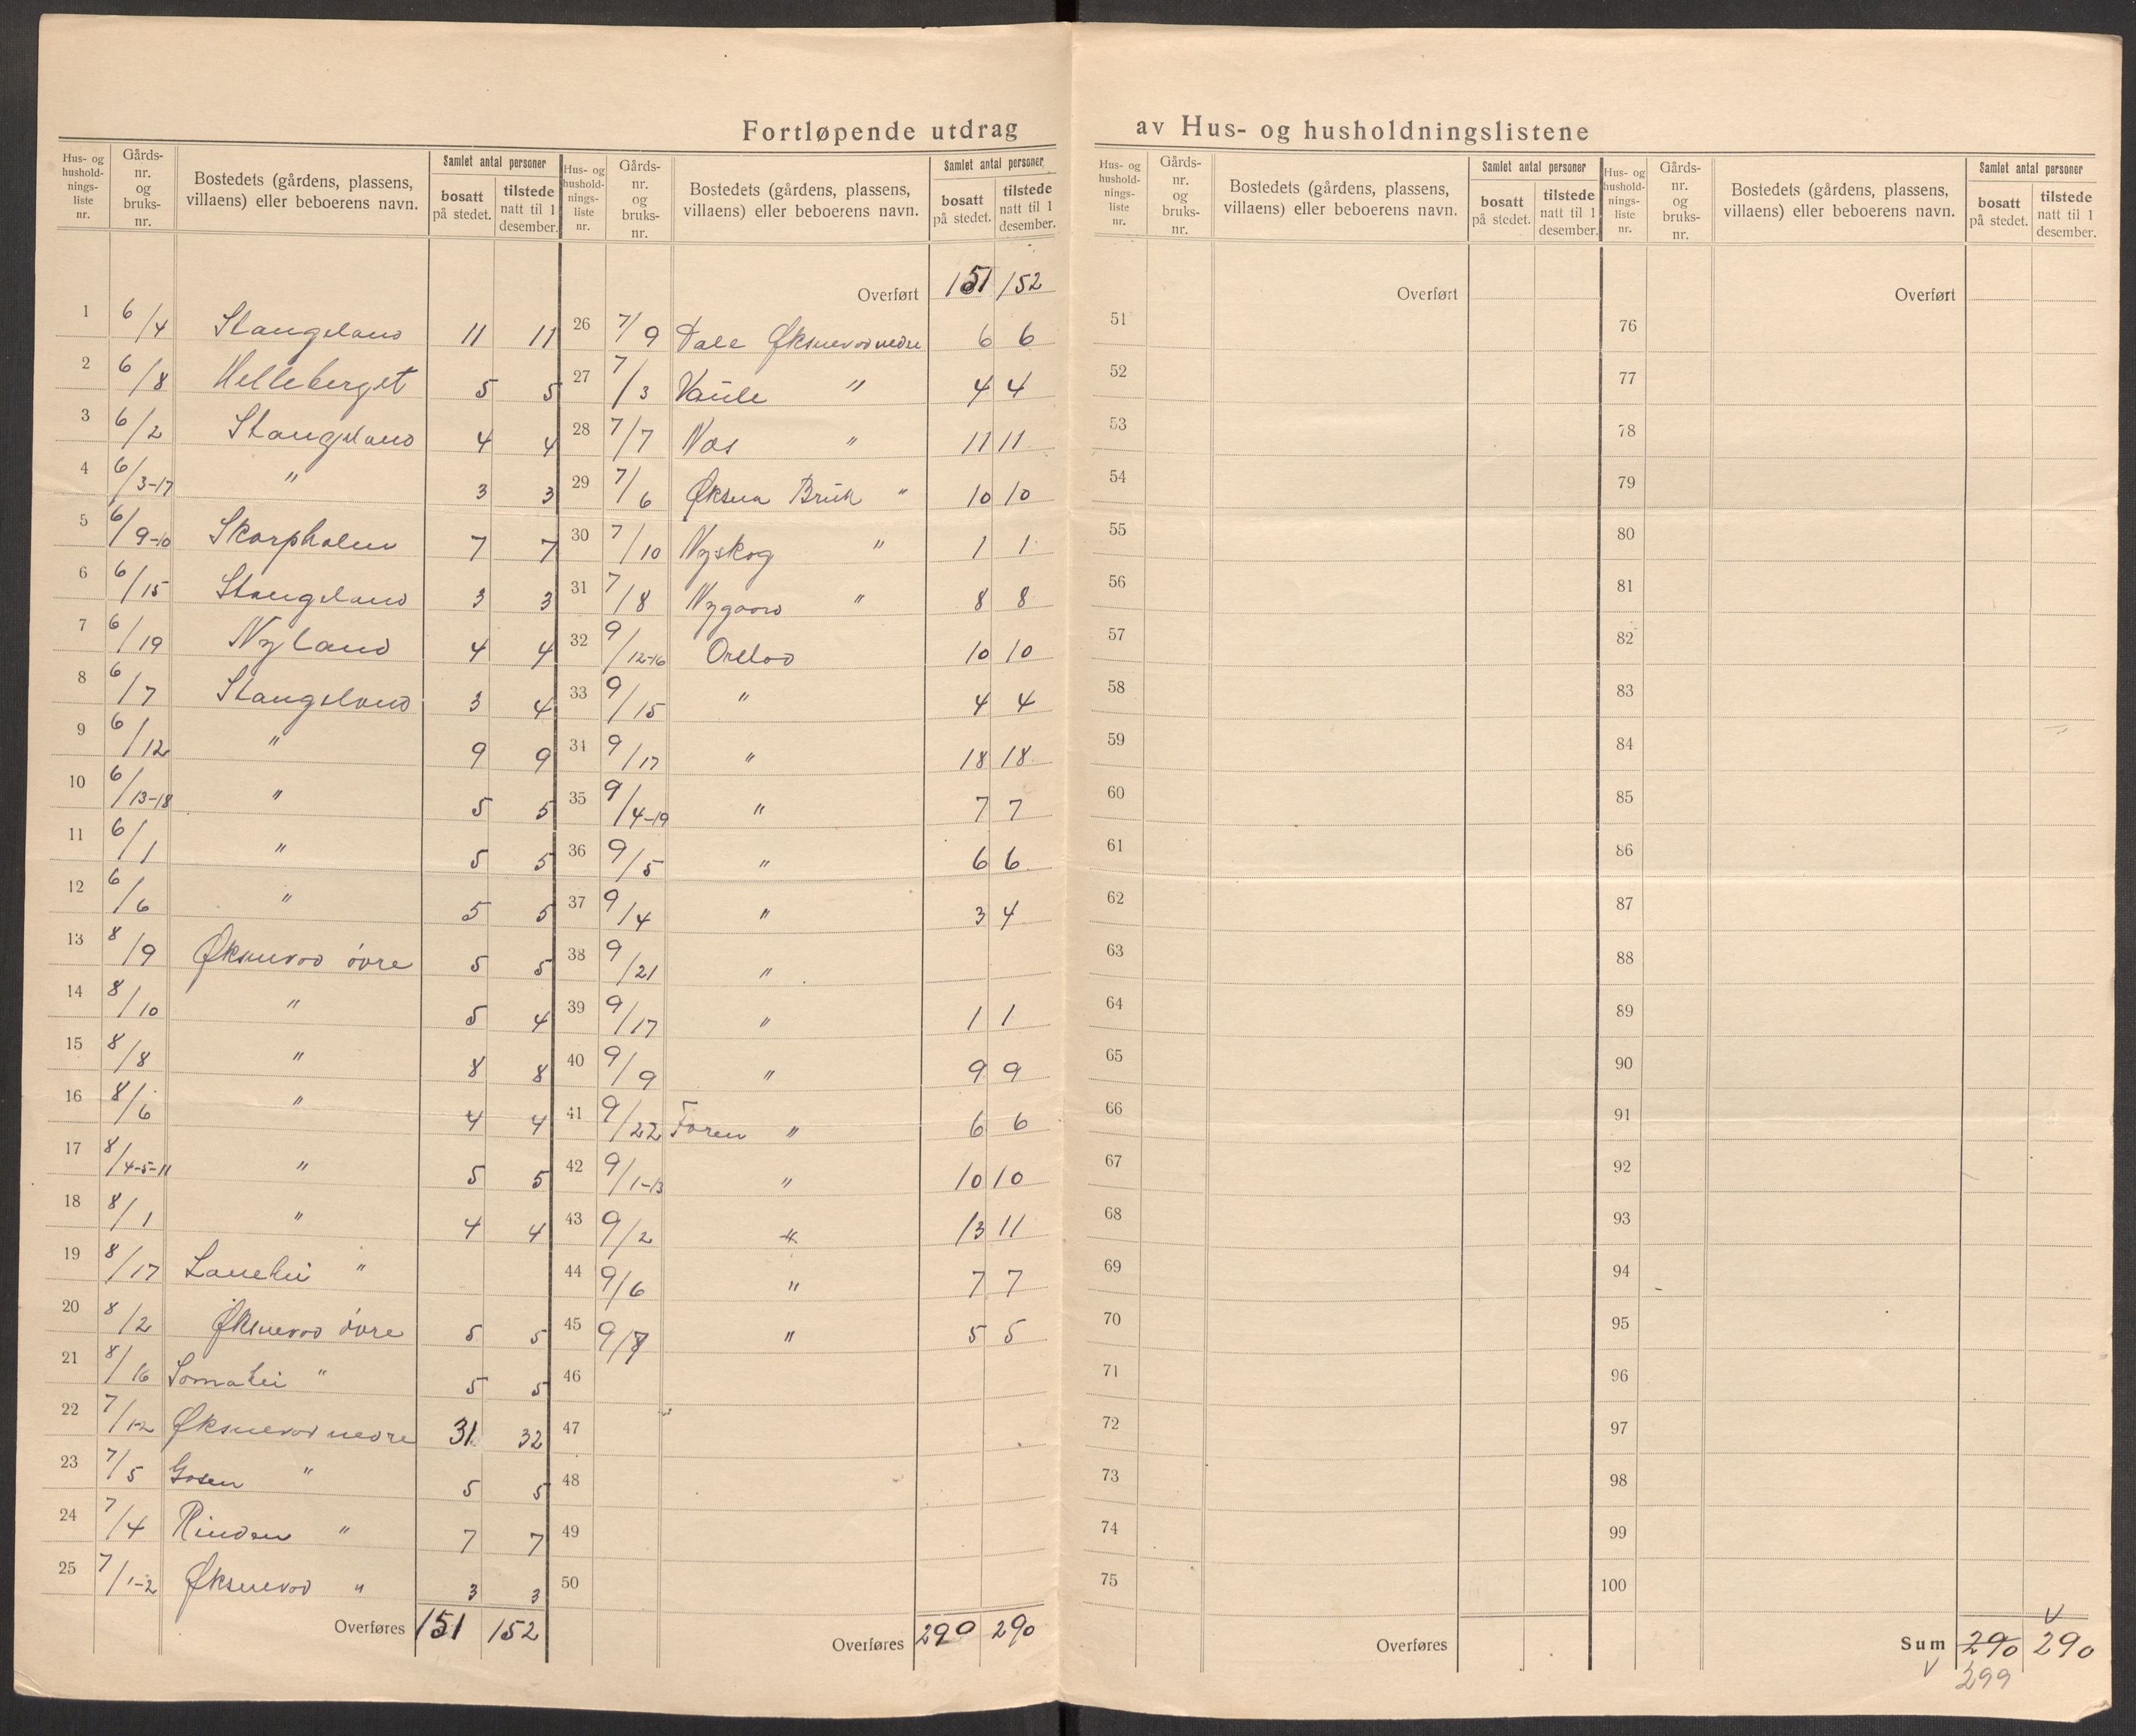 Fortløpende utdrag av Hus- og husholdningslistene
Hus- og husholdnings-liste nr. | Gårds-nr. og bruks-nr. | Bostedets (gårdens, plassens, villaens) eller beboerens navn. | Samlet antal personer | bosatt på stedet. | tilstede natt til 1 desember.
1 6/4 Stangeland 11 11
2 6/8 Helleberget 5 5
3 6/2 Stangeland 4 4
4 6/3-17 " 3 3
5 6/9-10 Skorpholen 7 7
6 6/15 Stangeland 3 3
7 6/19 Nyland 4 4
8 6/7 Stangeland 3 4
9 6/12 " 9 9
10 6/13-18 " 5 5
11 6/1 " 5 5
12 6/6 " 5 5
13 8/9 Øksnevad övre 5 5
14 8/10 " 5 4
15 8/8 " 8 8
16 8/6 " 4 4
17 8/4-5-11 " 5 5
18 8/1 " 4 4
19 8/17 "
20 8/2 Øksnevad övre 5 5
21 8/16 Somahei " 5 5
22 7/1-2 Øksnevad nedre 31 32
23 7/5 Gosen " 5 5
24 7/4 Rinden " 7 7
25 7/1-2 Øksnevad " 3 3
Overføres 151 152
Hus- og husholdnings-liste nr. | Gårds-nr. og bruks-nr. | Bostedets (gårdens, plassens, villaens) eller beboerens navn. | Samlet antal personer | bosatt på stedet. | tilstede natt til 1 desember.
Overført 151 152
26 7/9 Dale Øksnevad nedre 6 6
27 7/3 Vaule " 4 4
28 7/7 Nos " 11 11
29 7/6 Øksna Bruk " 10 10
30 7/10 Nyskog " 1 1
31 7/8 Nygaard " 8 8
32 9/12-16 Orstad 10 10
33 9/15 " 4 4
34 9/17 " 18 18
35 9/4-19 " 7 7
36 9/5 " 6 6
37 9/4 " 3 4
38 9/21 "
39 9/17 " 1 1
40 9/9 " 9 9
41 9/22 Foren " 6 6
42 9/1-13 " 10 10
43 9/2 " 13 11
44 9/6 " 7 7
45 9/7 " 5 5
46
47
48
49
50
Overføres 290 290
Hus- og husholdnings-liste nr. | Gårds-nr. og bruks-nr. | Bostedets (gårdens, plassens, villaens) eller beboerens navn. | Samlet antal personer | bosatt på stedet. | tilstede natt til 1 desember.
Overført
51
52
53
54
55
56
57
58
59
60
61
62
63
64
65
66
67
68
69
70
71
72
73
74
75
Overføres
Hus- og husholdnings-liste nr. | Gårds-nr. og bruks-nr. | Bostedets (gårdens, plassens, villaens) eller beboerens navn. | Samlet antal personer | bosatt på stedet. | tilstede natt til 1 desember.
Overført
76
77
78
79
80
81
82
83
84
85
86
87
88
89
90
91
92
93
94
95
96
97
98
99
100
Sum 290 290
299